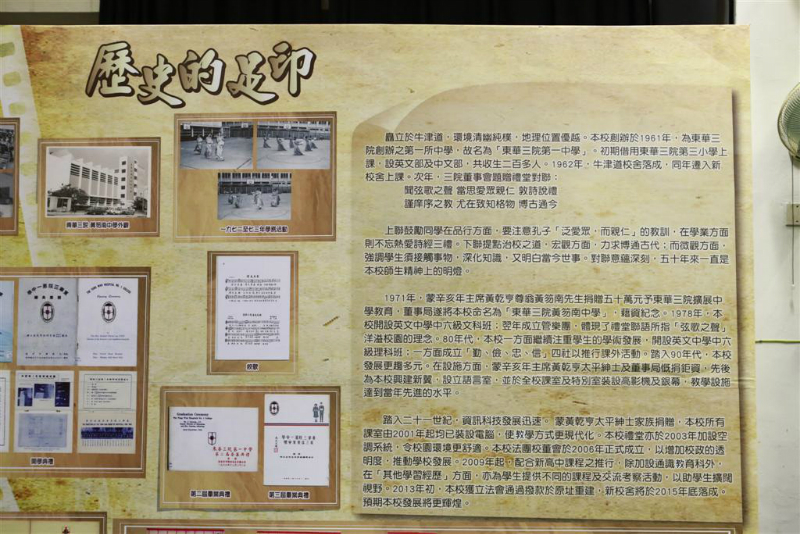 歷史的足印
矗立於牛津道，環境清幽純樸，地理位置優越。本校創辦於1961年，為東華三
院創辦之第一所中學，故名為「東華三院第一中學」。初期借用東華三院第三小學上
課，設英文部及中文部，共收生二百多人。1962年，牛津道校舍落成，同年遷入新
校舍上課。次年，三院董事會題贈禮堂對聯：
聞弦歌之聲 當思愛眾親仁 敦詩說禮
謹庠序之教 尤在致知格物 博古通今
上聯鼓勵同學在品行方面，要注意孔子「泛愛眾，而親仁」的教訓，在學業方面
則不忘熱愛詩經三禮。下聯提點治校之道，宏觀方面，力求博通古代；而微觀方面，
強調學生須接觸事物，深化知識，又明白當今世事。對聯意蘊深刻，五十年來一直是
本校師生精神上的明燈。
1971年，蒙辛亥年主席黃乾亨尊翁黃笏南先生捐贈五十萬元予東華三院擴展中
學教育，董事局遂將本校命名為「東華三院黃笏南中學」，籍資紀念。1978年，本
校開設英文中學中六級文科班；翌年成立管樂團，體現了禮堂聯語所指「弦歌之聲」
洋溢校園的理念。80年代，本校一方面繼續注重學生的學術發展，開設英文中學中六
級理科班；一方面成立「勤、儉、忠、信」四社以推行課外活動。踏入90年代，本校
發展更趨多元。在設施方面，蒙辛亥年主席黃乾亨太平紳士及董事局慨捐鉅資，先後
為本校興建新翼、設立語言室，並於全校課室及特別室裝設高影機及銀幕，教學設施
達到當年先進的水平。
踏入二十一世紀，資訊科技發展迅速。蒙黃乾亨太平紳士家族捐贈，本校所有
課室由2001年起均已裝設電腦，使教學方式更現代化。本校禮堂亦於2003年加設空
調系統，令校園環境更舒適。本校法團校董會於2006年正式成立，以增加校政的透
明度，推動學校發展。2009年起，配合新高中課程之推行，除加設通識教育科外，
在「其他學習經歷」方面，亦為學生提供不同的課程及交流考察活動，以助學生擴闊
視野。2013年初，本校獲立法會通過撥款於原址重建，新校舍將於2015年底落成。
預期本校發展將更輝煌。
一九七二至七三年學務活動
校歌
第二屆畢業典禮
第三屆畢業典禮
Graduation Ceremony